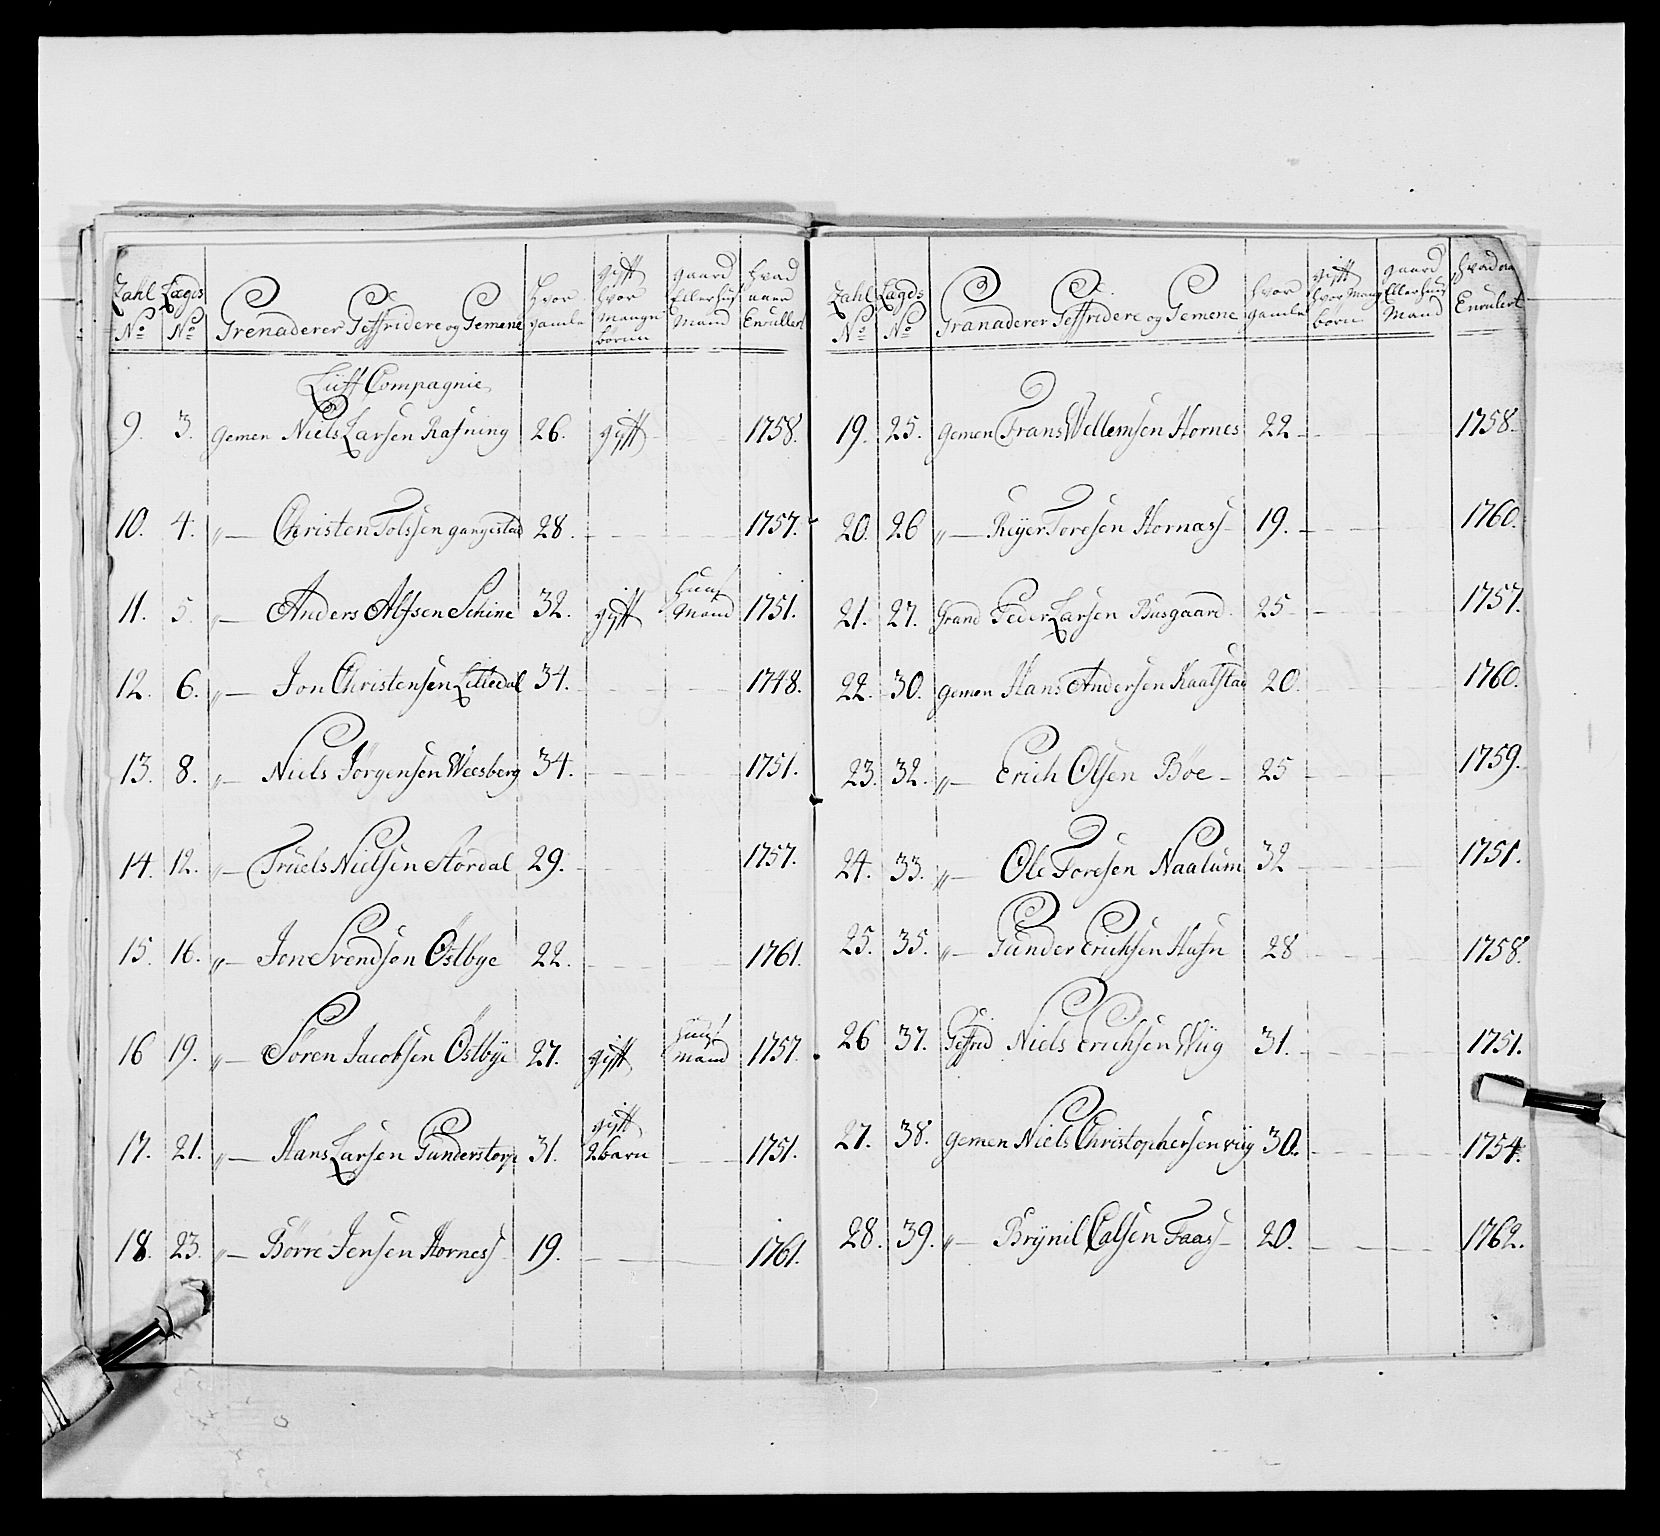 Zahl No Lægds No Grenaderer Geffridere og Gemene hvor gamle gift hvor mange børnn gaard Eller huus Mand hvad aar Enrullert
Liiff Compagnie
9. 3. gemen Niels Larsen Rafning 26. gifft 1758.
10. 4. „ Christen Tolssen gangestad 28. 1757.
11. 5. „ Anders Alfsen Schine 32. gifft huus Mand 1751.
12. 6. „ Jon Christensen Lilledal 34. 1748.
13. 8. „ Niels Jörgensen Weesberg 34. 1751.
14. 12. „ Truels Nielsen Stördal 29. 1757.
15. 16. „ Jon Svendsen Östbye 22. 1761.
16 19. „ Sören Jacobsen Östbye 27. gifft huus Mand 1757.
17. 21. „ Hans Larsen Gunderstorp 31. gifft 2 barn 1751.
18. 23. „ Börre Jensen Horness 19. 1761.
Zahl No Lægds No Granaderer Geffridere og Gemene hvor gamle gift hvor mang børn gaard Eller huus Mand hvad aar Enrulert
19. 25. gemen Frans Wellemsen Hornes 22 1758.
20. 26 „ Reyer Toresen Hornass 19. 1760.
21. 27. Grand Peder Larsen Busgaard 25 1757.
22. 30. gemen Hans Andersen Kaalstad 20. 1760.
23. 32. „ Erich Olsen Böe 25 1759.
24. 33. „ Ole Toresen Naalum 32 1751.
25. 35. „ Gunder Erichsen Hufn 28 1758.
26 37. Geffrid Niels Erichsen Wiig 31. 1751.
27. 38. gemen Niels Christophersen viig 30. 1754.
28. 39. „ Brynil Calsen Faass 20. 1762.